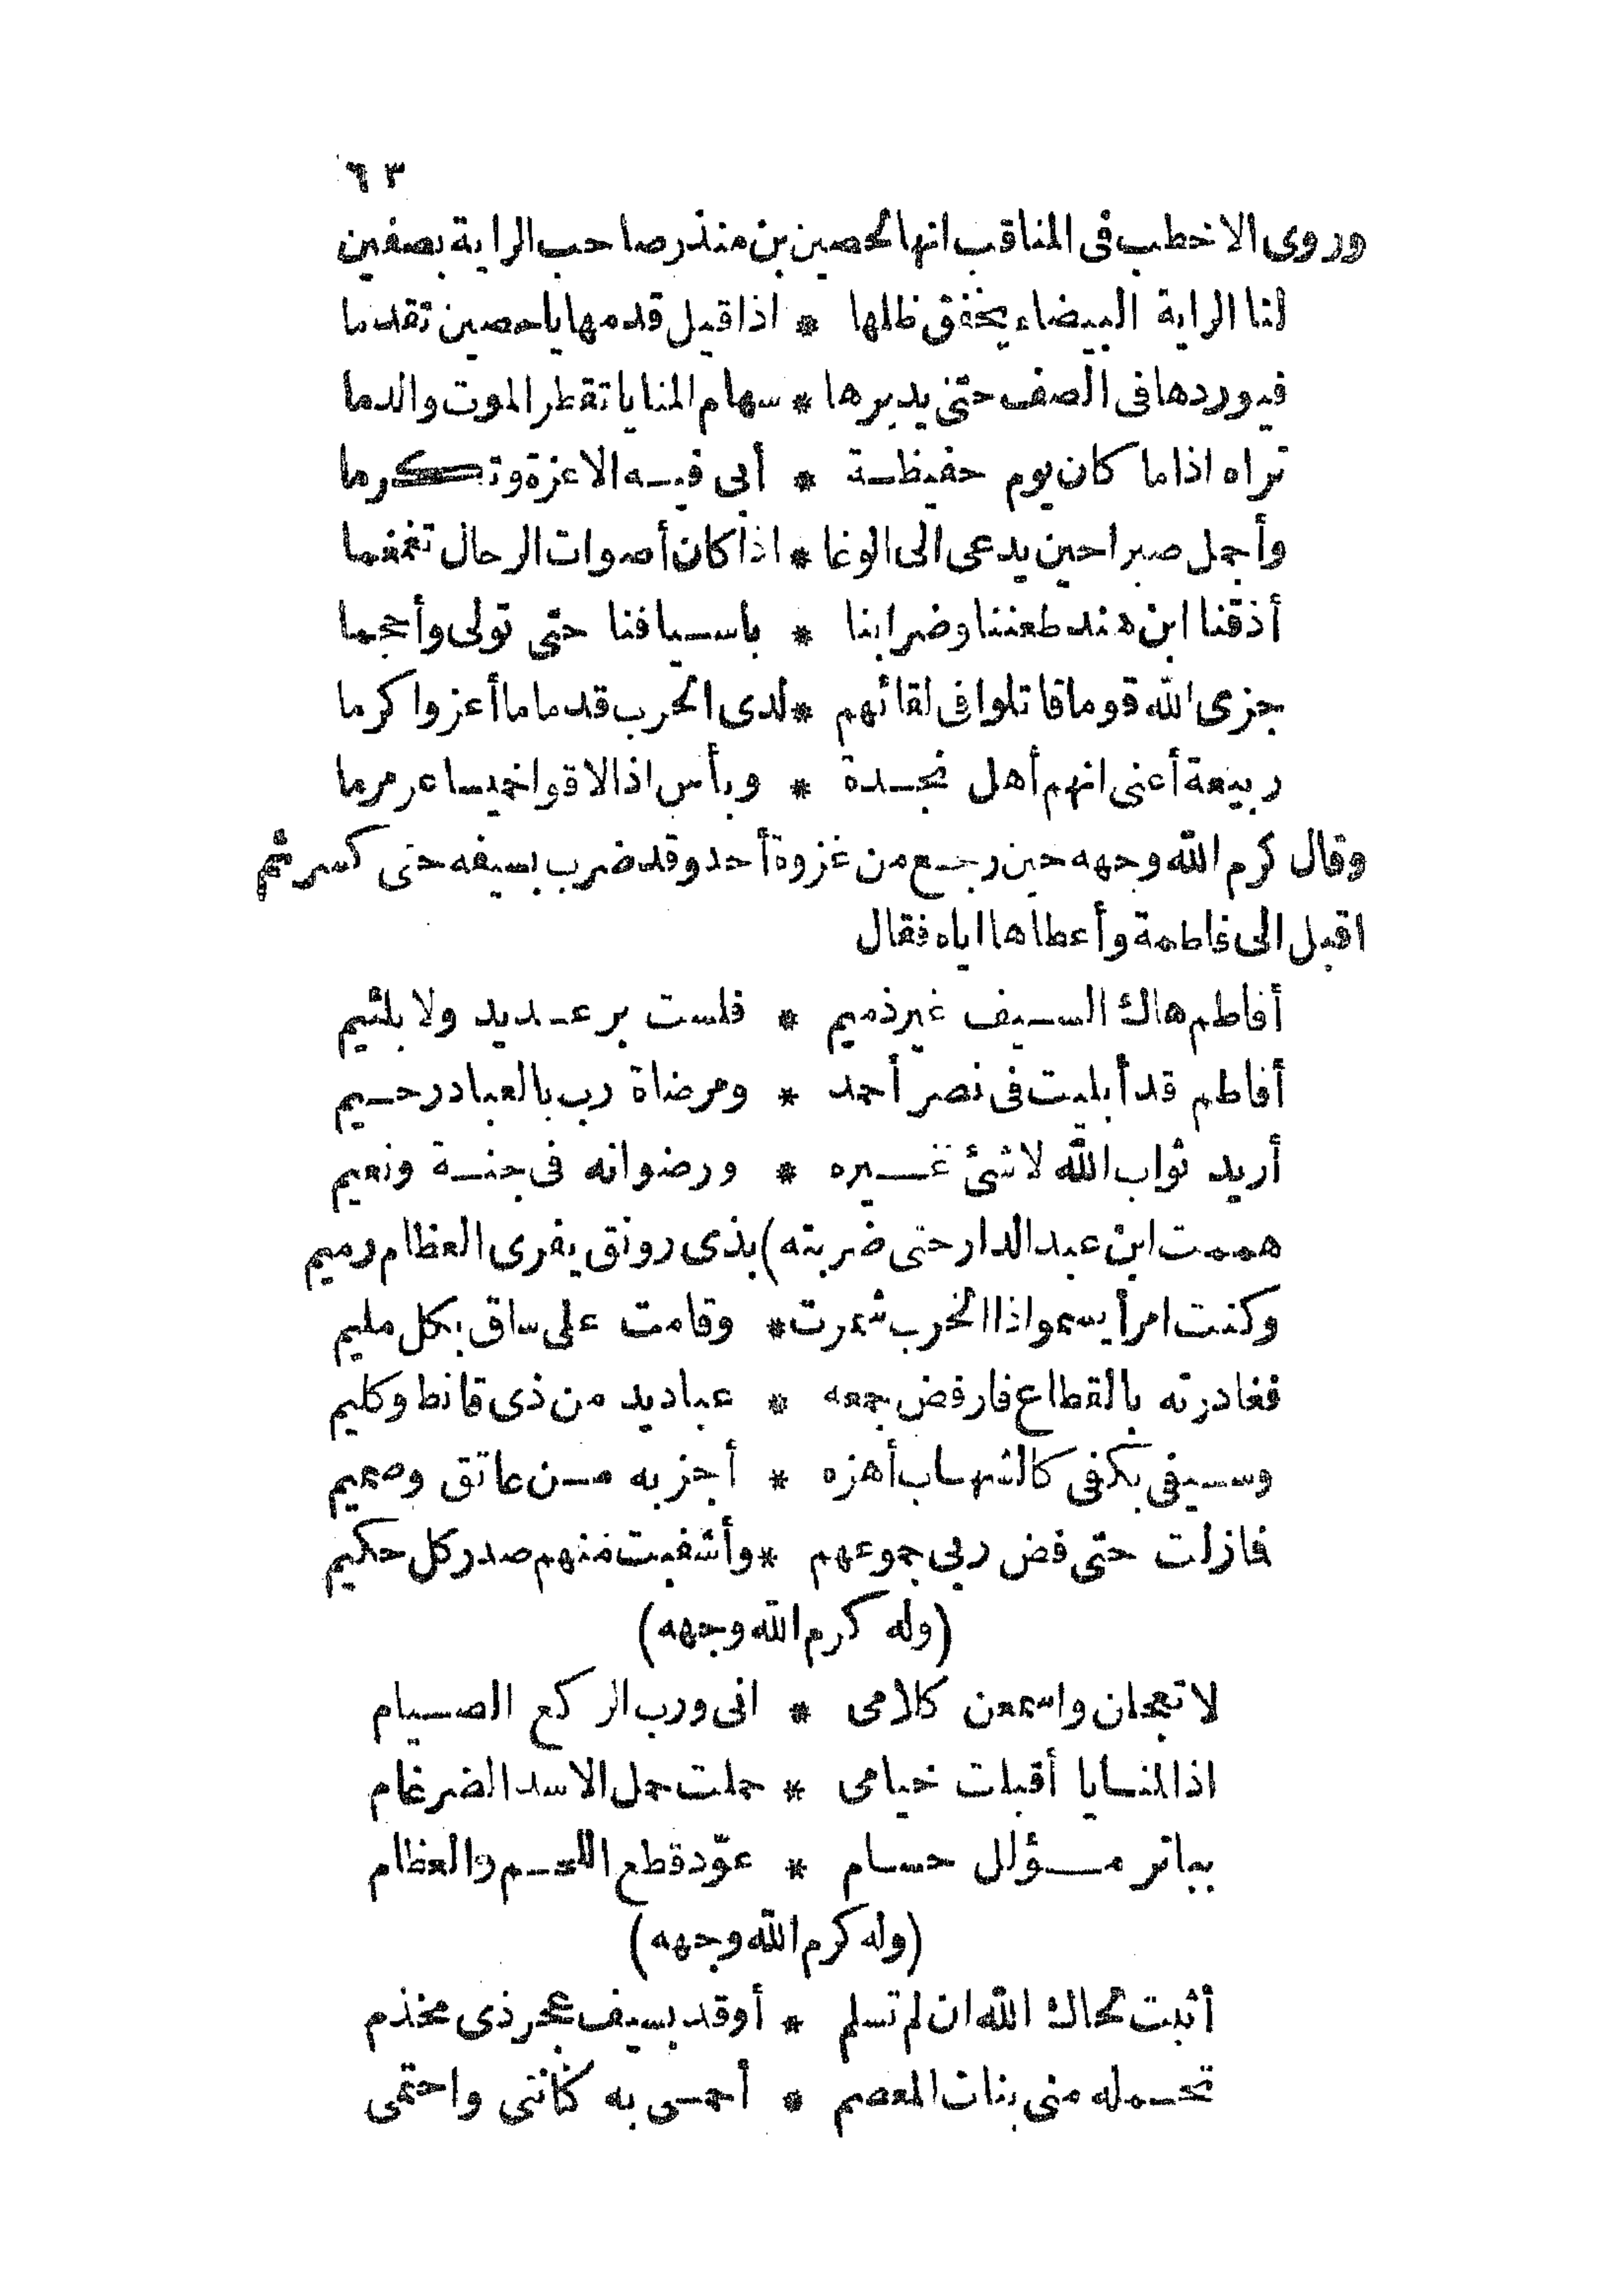 ٦٣
وروى الاخطب فى المناقب انها لحصين بن منذر صاحب الراية بصفين
لنا الراية البيضاء يخفق ظلها * اذا قيل قدمها يا حصين تقدما
فيوردها فى الصف حتى يديرها * سهام المنايا تقطر الموت والدما
تراه اذا ما كان يوم حفيظة * أبى فيه الا عزة وتكرما
وأجمل صبرا حين يدعى الى الوغا * اذا كان أصوات الرحال تغمغما
أذقنا ابن هند طعننا وضرابنا * باسيافنا حتى تولى وأحجما
جزى الله قوما قاتلوا فى لقائهم * لدى الحرب قدما ما أعز وا كرما
ربيعة أعنى انهم أهل نجدة * وبأس اذا لاقوا خميسا عرمرما
وقال كرم الله وجهه حين رجع من غزوة أحد وقد ضرب بسيفه حتى كسر ثم
اقبل الى فاطمة وأعطاها اياه فقال
أفاطم هاك السيف غير ذميم * فلست برعديد ولا بلئيم
أفاطم قد أبليت فى نصر أحمد * ومرضاة رب بالعباد رحيم
أريد ثواب الله لا شئ غيره * ورضوانه فى جنة ونعيم
هممت ابن عبد الدار حتى ضربته ) بذى رونق يفرى العظام رميم
وكنت امرأ يسمو اذا الحرب شمرت * وقامت على ساق بكل مليم
فغادرته بالقطاع فارفض جمعه * عباديد من ذى قانط وكليم
وسيفى بكفى كالشهاب أهزه * أجز به من عاتق وصميم
فما زلت حتى فض ربى جموعهم * وأشفيت منهم صدر كل حكيم
(وله كرم الله وجهه)
لا تعجلن واسمعن كلامى * انى ورب الركع الصيام
اذا المنايا أقبلت خيامى * حملت حمل الاسد الضرغام
بباتر مؤلل حسام * عوّد قطع اللحم والعظام
(وله كرم الله وجهه)
أثبت لحاك الله ان لم تسلم * أوقد بسيف عجر ذى مخذم
تحمله منى بنان المعصم * أحمى به كتائبى واحتمى